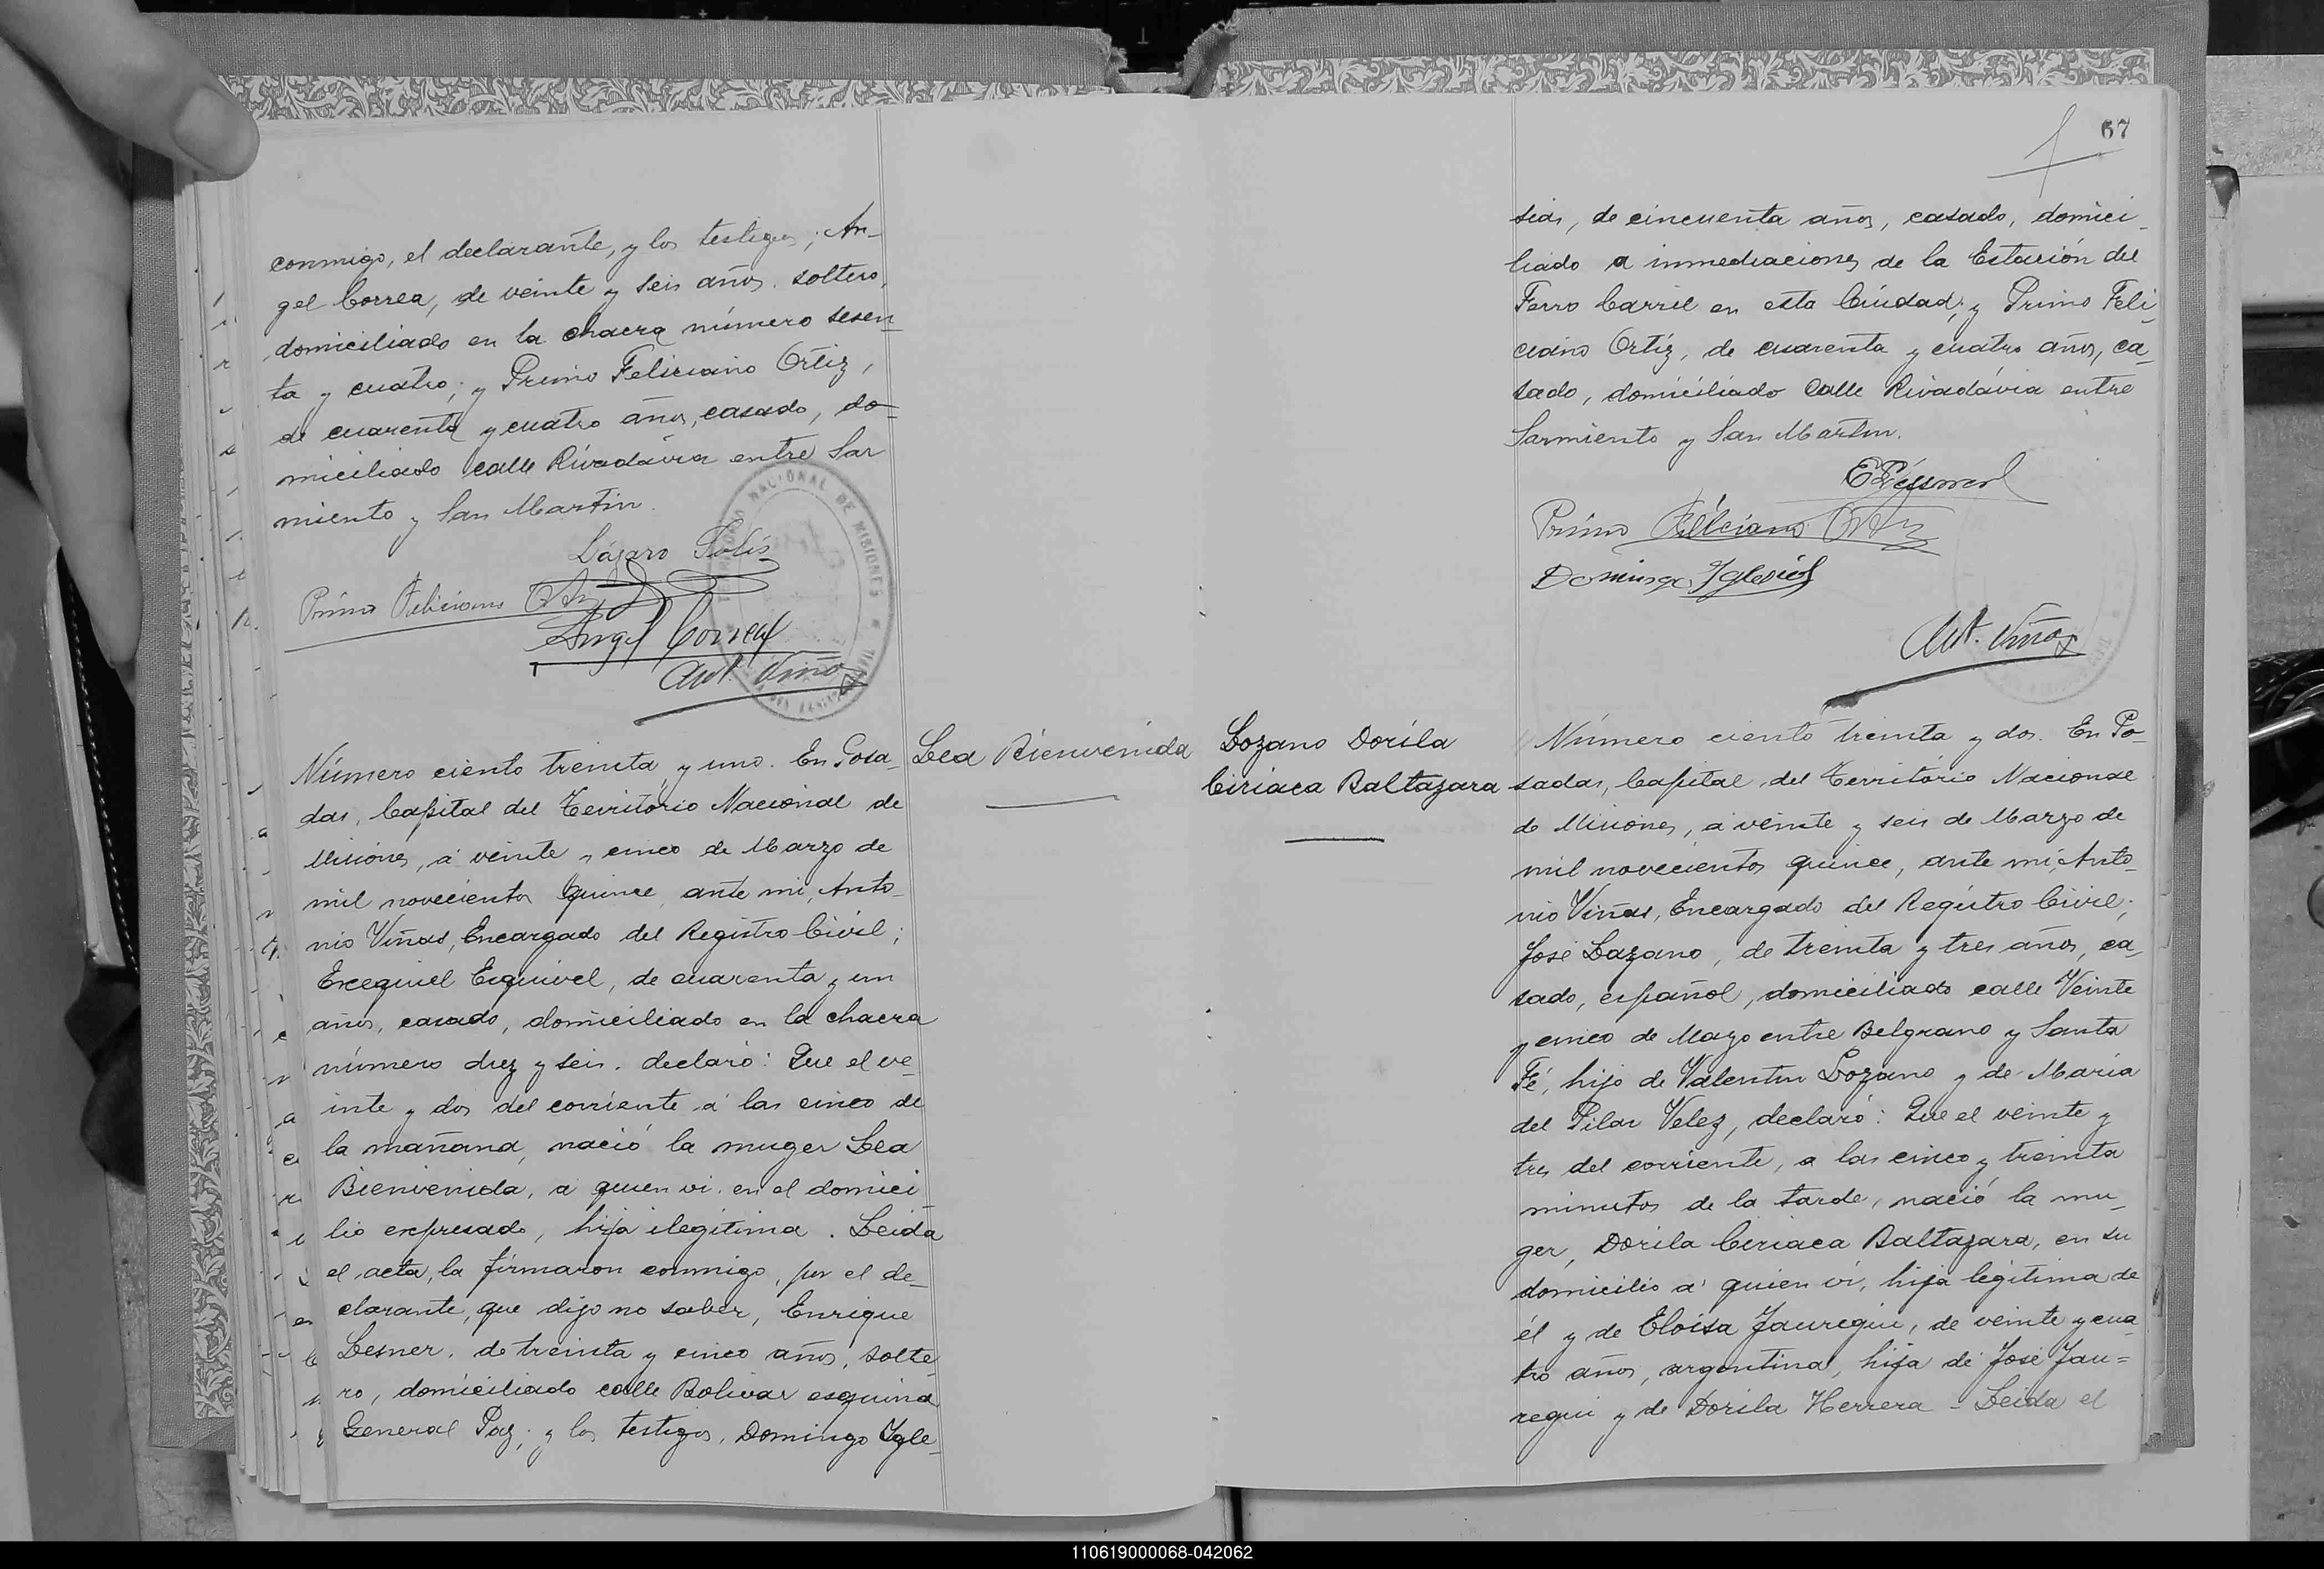 conmigo, el declarante, y los testigos; An-
gel Correa, de veinte y seis años, soltero,
domiciliado en la chacra número sesen-
ta y cuatro; y Primo Feliciano Ortiz,
de cuarenta y cuatro años, casado, do-
miciliado calle Rivadavia entre Sar
miento y San Martin.
NACIONAL DE MISIONES
Lázaro Solís
Primo Feliciano Ortiz
Angel Correa
Ant. Viñas
Número ciento treinta y uno. En Posa-
das, Capital del Territorio Nacional de
Misiones, á veinte y cinco de Marzo de
mil novecientos quince, ante mi, Anto-
nio Viñas, Encargado del Registro Civil;
Exequiel Esquivel, de cuarenta y un
años, casado, domiciliado en la chacra
número diez y seis, declaró: Que el ve-
inte y dos del corriente á las cinco de
la mañana, nació la muger Lea
Bienvenida, á quien vi, en el domici
lio expresado, hija ilegitima. Leida
el acta, la firmaron conmigo, por el de-
clarante, que dijo no saber, Enrique
Lesner, de treinta y cinco años, solte
ro, domiciliado calle Bolivar esquina
General Paz; y los testigos, Domingo Ygle-
Lea Bienvenida
67
sias, de cincuenta años, casado, domici-
liado a inmediaciones de la Estación del
Ferro Carril en esta Ciudad; y Primo Feli-
ciano Ortiz, de cuarenta y cuatro años, ca-
sado, domiciliado Calle Rivadávia entre
Sarmiento y San Martin.
Primo Feliciano Ortiz
Domingo Yglesias
Ant. Viñas
Lozano Dorila
Ciriaca Baltazara
Número ciento treinta y dos. En Po-
sadas, Capital del Territorio Nacional
de Misiones, á veinte y seis de Marzo de
mil novecientos quince, ante mi, Anto-
nio Viñas, Encargado del Registro Civil;
José Lozano, de treinta y tres años, ca-
sado, español, domiciliado calle Veinte
y cinco de Mayo entre Belgrano y Santa
Fé, hijo de Valentin Lozano y de María
del Pilar Velez, declaró: Que el veinte y
tres del corriente, a las cinco y treinta
minutos de la tarde, nació la mu-
ger, Dorila Ciriaca Baltazara, en su
domicilio á quien vi, hija legitima de
él y de Eloisa Jauregui, de veinte y cua-
tro años, argentina, hija de José Jau=
regui y de Dorila Herrera - Leida el
110619000068-042062